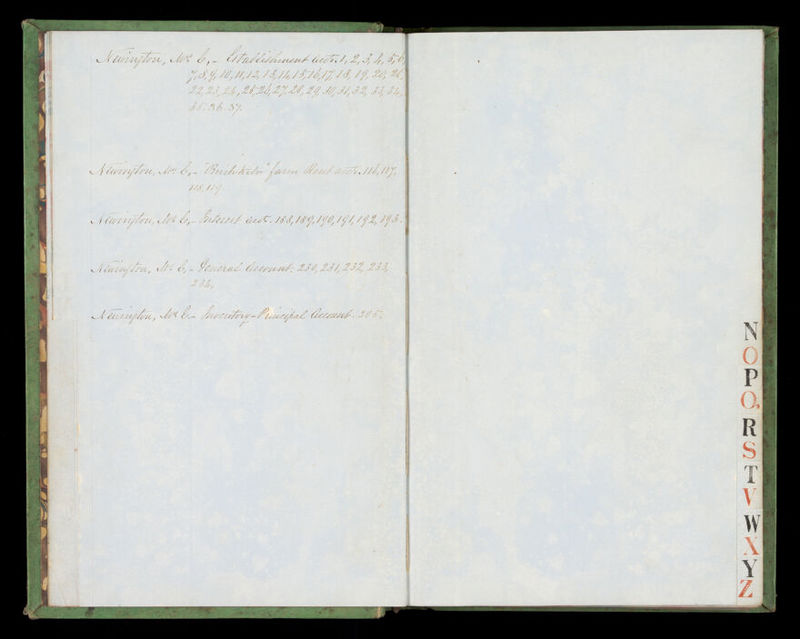 Newington, Mr C, - Establishment acct. 1, 2, 3, 4, 5, 6,
7, 8, 9, 10, 11, 12, 13, 14, 15, 16, 17, 18, 19, 20, 21,
22, 23, 24, 25, 26, 27, 28, 29, 30, 31, 32, 33, 34,
35. 36. 37.
Newington, Mr C, - farm Rent acct. 116, 117,
118, 119.
Newington, Mr C, - Interest acct. 188, 189, 190, 191, 192, 193.
Newington, Mr C, - General Account. 230, 231, 232, 233,
234,
Newington, Mr C. - Inventory - Principal Account. 205.
N
O
P
Q
R
S
T
V
W
X
Y
Z